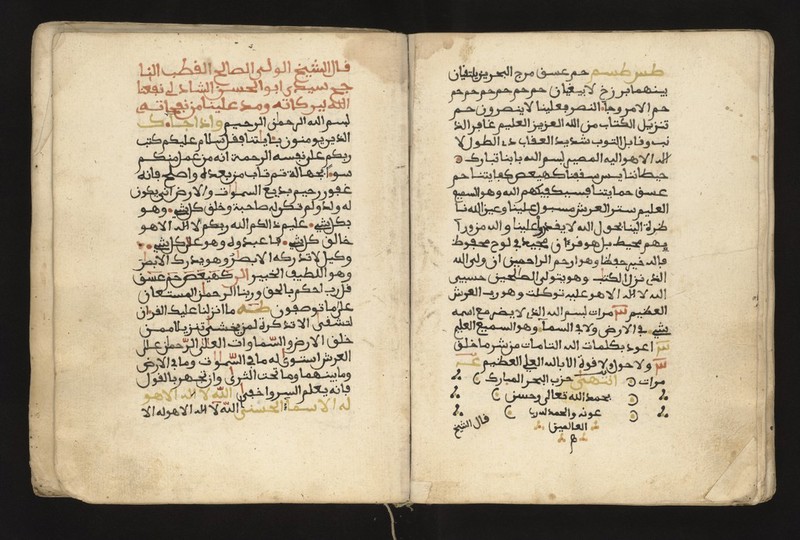 طس طسم حم عسق مرج البحرين يلتقيان
بينهما برزخ لا يبغيان حم حم حم حم حم حم حم
حم الامر وجاء النصر فعلينا لا ينصرون حم
تنزيل الكتاب من الله العزيز العليم غافر الذ
نب وقابل التوب شديد العقاب ذي الطول لا
اله الا هو اليه المصير بسم الله بابنا تبارك
حيطاننا يس سقفنا كهيعص كفايتنا حم
عسق حمايتنا فسيكفيكهم الله وهو السميع
العليم ستر العرش مسبول علينا وعين الله نا
ظرة الينا بحول الله لا يقدر علينا والله من ورآ
يهم محيط بل هو قرءان مجيد في لوح محفوظ
فالله خير حفظا وهو ارحم الراحمين ان وليي الله
الذي نزل الكتب وهو يتولى الصلحين حسبي
الله لا اله الا هو عليه توكلت وهو رب العرش
العظيم مرات بسم الله الذي لا يضر مع اسمه
شيء في الارض ولا في السماء وهو السميع العليم
اعوذ بكلمات الله التامات من شر ما خلق
ولا حول ولا قوة الا بالله العلي العظيم
مرات انتهى حزب البحر المبارك
بحمد الله تعالى وحسن
عونه والحمد لله رب
العالمين
قال الشيخ
قال الشيخ الولي الصالح القطب النا
جح سيدي ابو الحسن الشاذلي نفعنا
الله ببركاته ومد علينا من نفحاته
بسم الله الرحمن الرحيم واذا جاءك
الذين يومنون بئايتنا فقل سلام عليكم كتب
ربكم على نفسه الرحمة انه من عمل منكم
سوءا بجهالة ثم تاب من بعده واصلح فانه
غفور رحيم بديع السموات والارض انى يكون
له ولد ولم تكن له صاحبة وخلق كل شيء وهو
بكل شيء عليم ذلكم الله ربكم لا اله الا هو
خالق كل شيء فاعبدوه وهو على كل شيء
وكيل لا تدركه الابصر وهو يدرك الابصر
وهو اللطيف الخبير الر كهيعص حم عسق
قل رب احكم بالحق وربنا الرحمن المستعان
على ما تصفون طه ما انزلنا عليك القران
لتشقى الا تذكرة لمن يخشى تنزيلا ممن
خلق الارض والسماوات العلى الرحمن على
العرش استوى له ما في السموت وما في الارض
وما بينهما وما تحت الثرى وان تجهر بالقول
فانه يعلم السر واخفى الله لا اله الا هو
له الاسماء الحسنى الله لا اله الا هو له الا